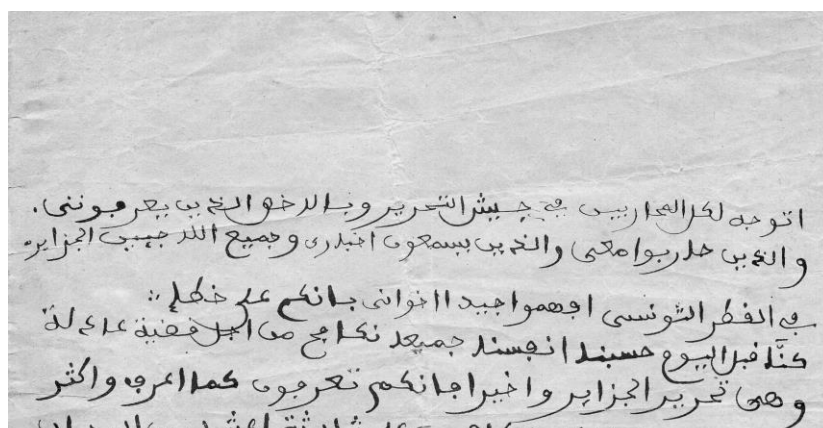 اتوجه لكل المحاربين في جيش التحرير وبالاخص الذين يعرفونني.
والذين حاربوا معي والذين يسمعون اخبدري وجميع اللاجيين الجزاير
في القطر التونسي افهموا جيدا اخواني بانكم على خطإ
كنّا قبل اليوم حسبنا انفسنا جميعا نكافح من اجل قضية عادلة
وهي تحرير الجزاير واخيرا فانكم تعرفون كما اعرف واكثر